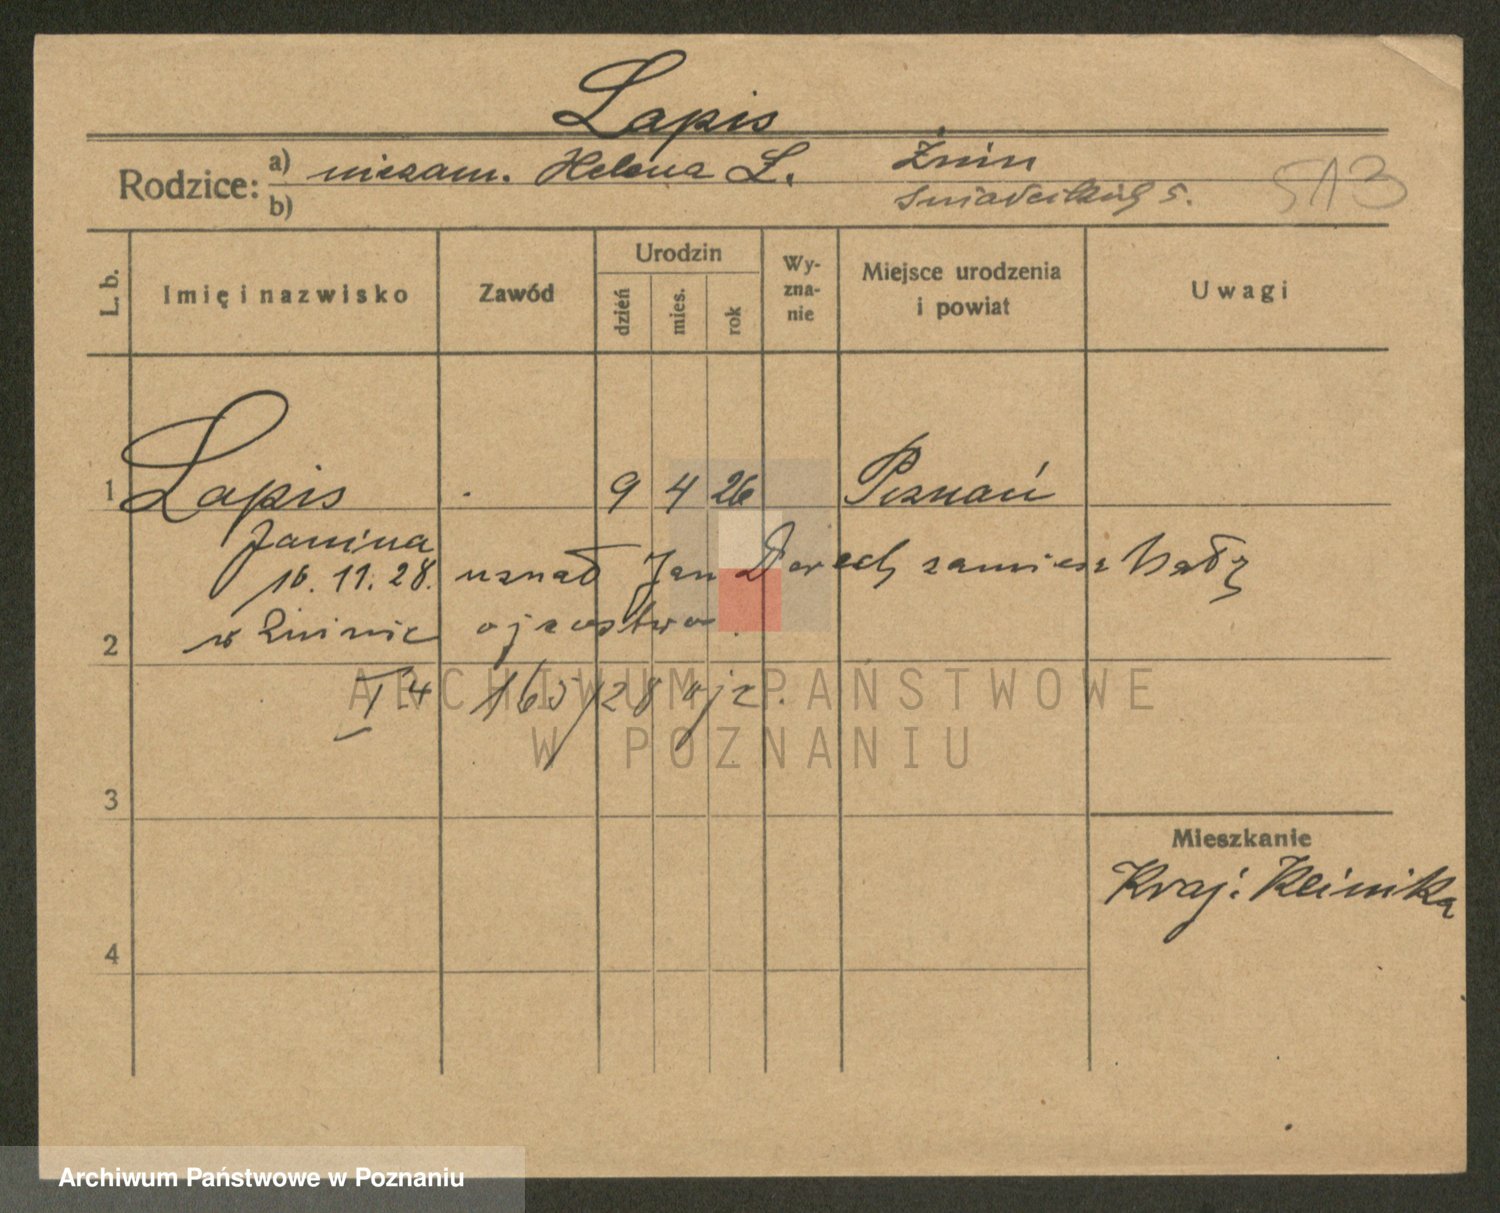 Lapis
Rodzice: a) niezam. Helena L. Żnin
b) Śniadeckich 5. 513
L. b.
Imię i nazwisko
Zawód
Urodzin
dzień
mies.
rok
Wy-
zna-
nie
Miejsce urodzenia
i powiat
Uwagi
1 Lapis 9 4 26 Poznań
Janina
16. 11. 28. uznał Jan
2 w Żninie ojcostwo.
I 4 165/28 ojc.
ARCHIWUM PAŃSTWOWE
W POZNANIU
3
Mieszkanie
Kraj. Klinika
4
Archiwum Państwowe w Poznaniu